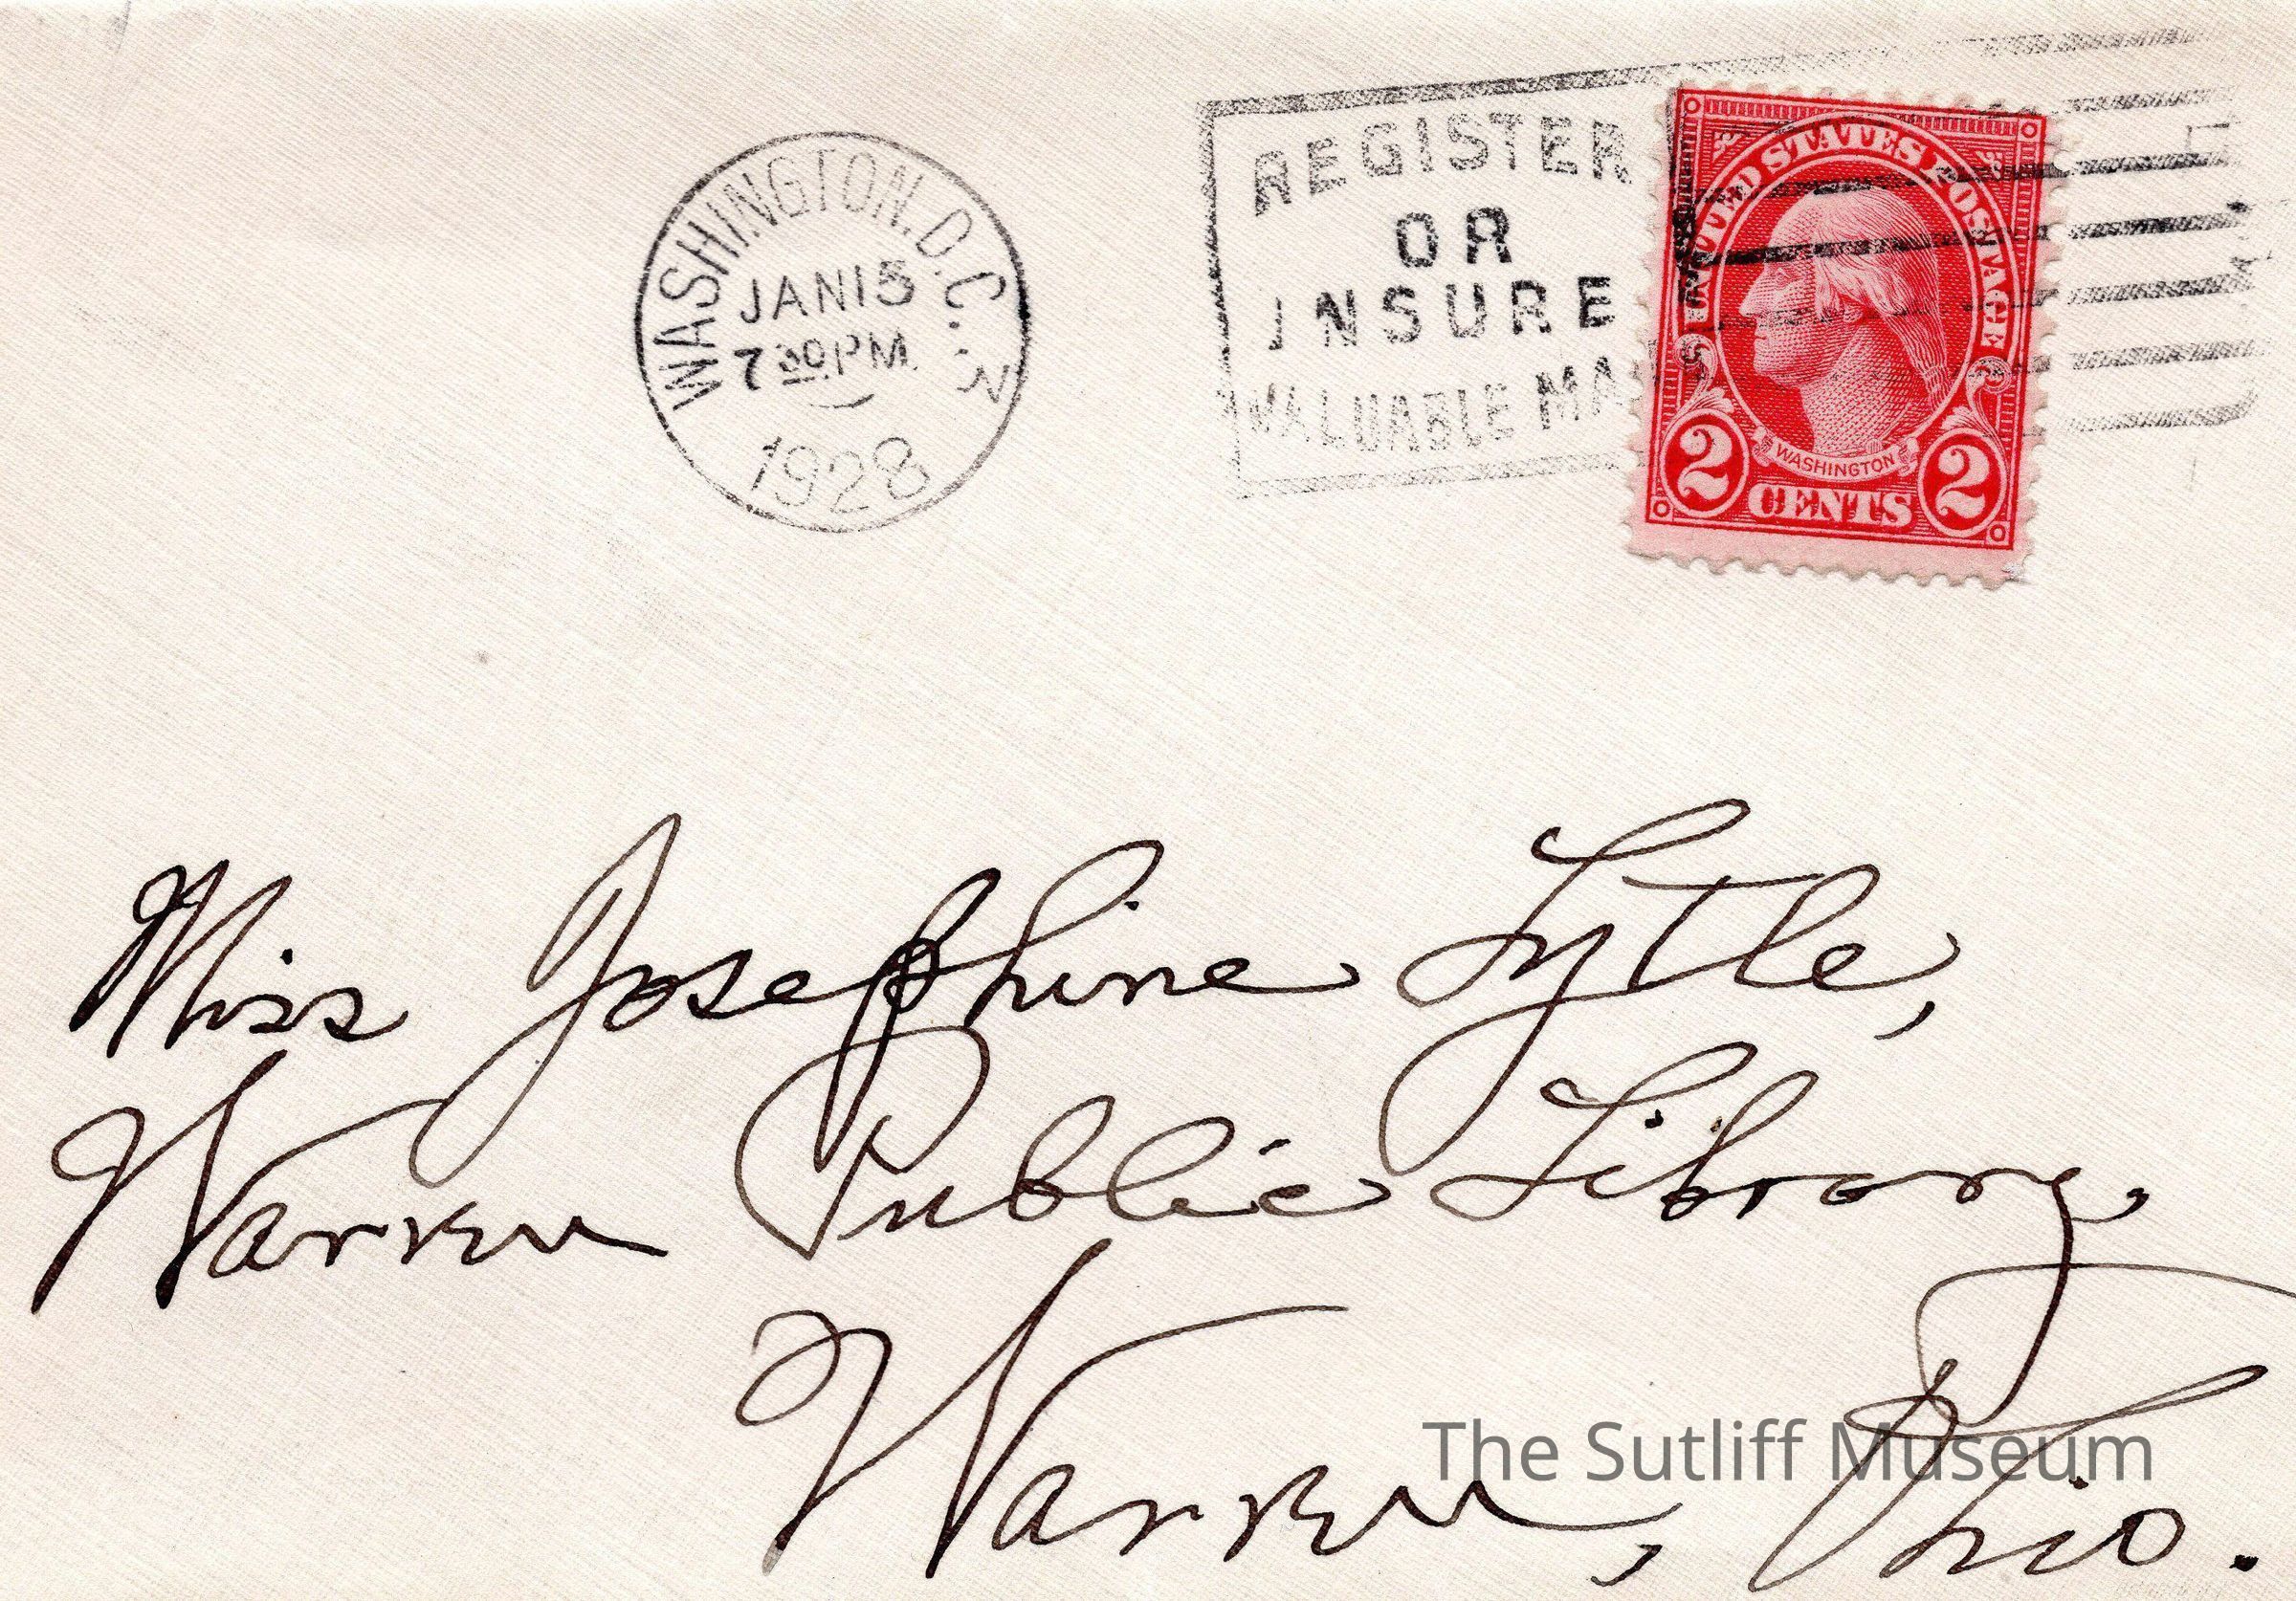 WASHINGTON, D.C.
JAN 15
7 30 PM.
1928
REGISTER
OR
INSURE
VALUABLE MA
UNITED STATES POSTAGE
WASHINGTON
2 CENTS 2
Miss Josephine Lytle,
Warren Public Library,
Warren, Ohio.
The Sutliff Museum